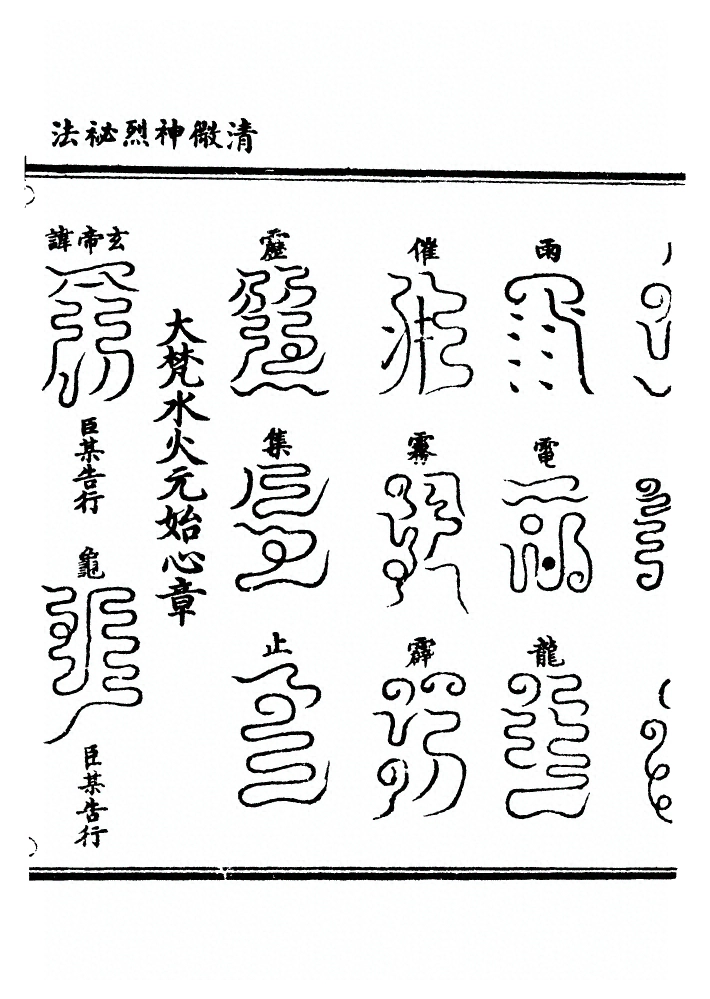 清微神烈祕法
雨
電
龍
催
霧
霹
靂
集
止
大梵水火元始心章
玄帝諱
臣某告行
龜
臣某告行